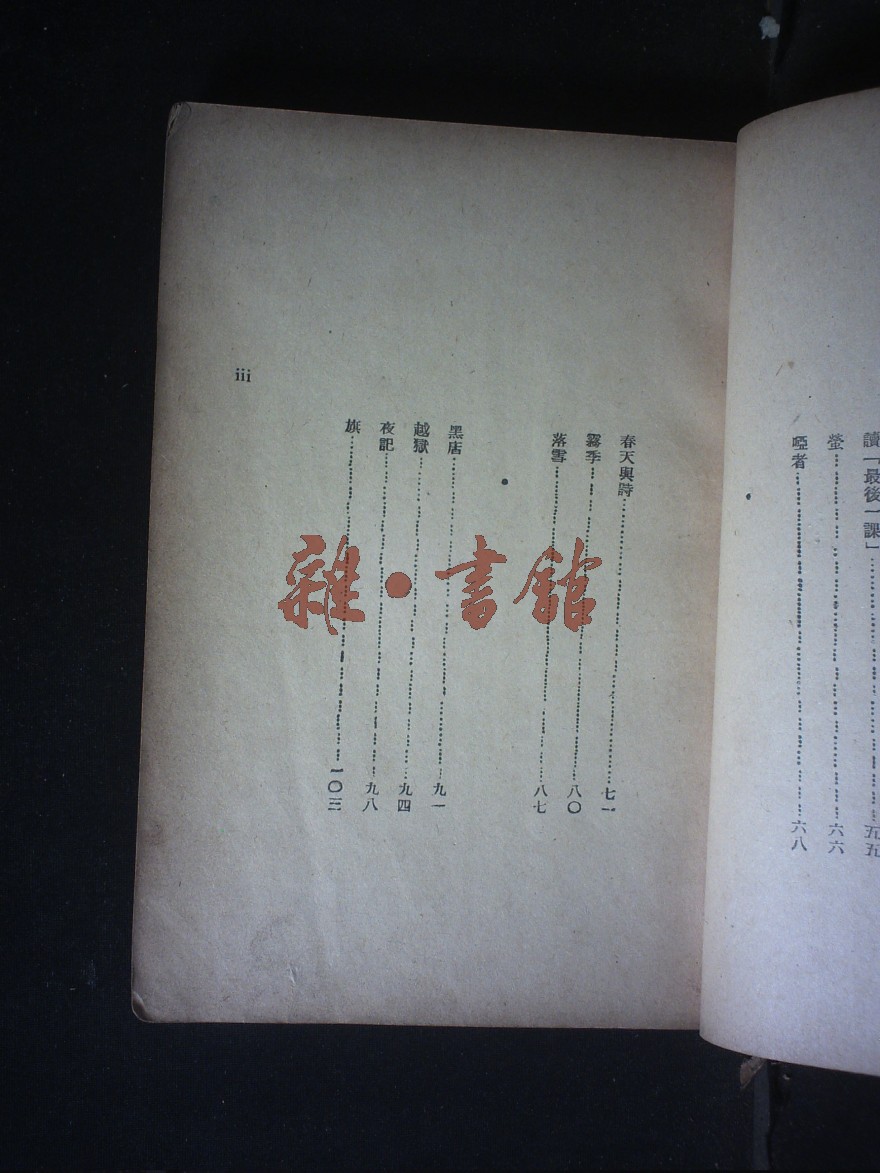 讀「最後一課」……五五
螢……六六
啞者……六八
春天與詩……七一
霧季……八〇
落雪……八七
黑店……九一
越獄……九四
夜記……九八
旗……一〇三
iii
雜·書館